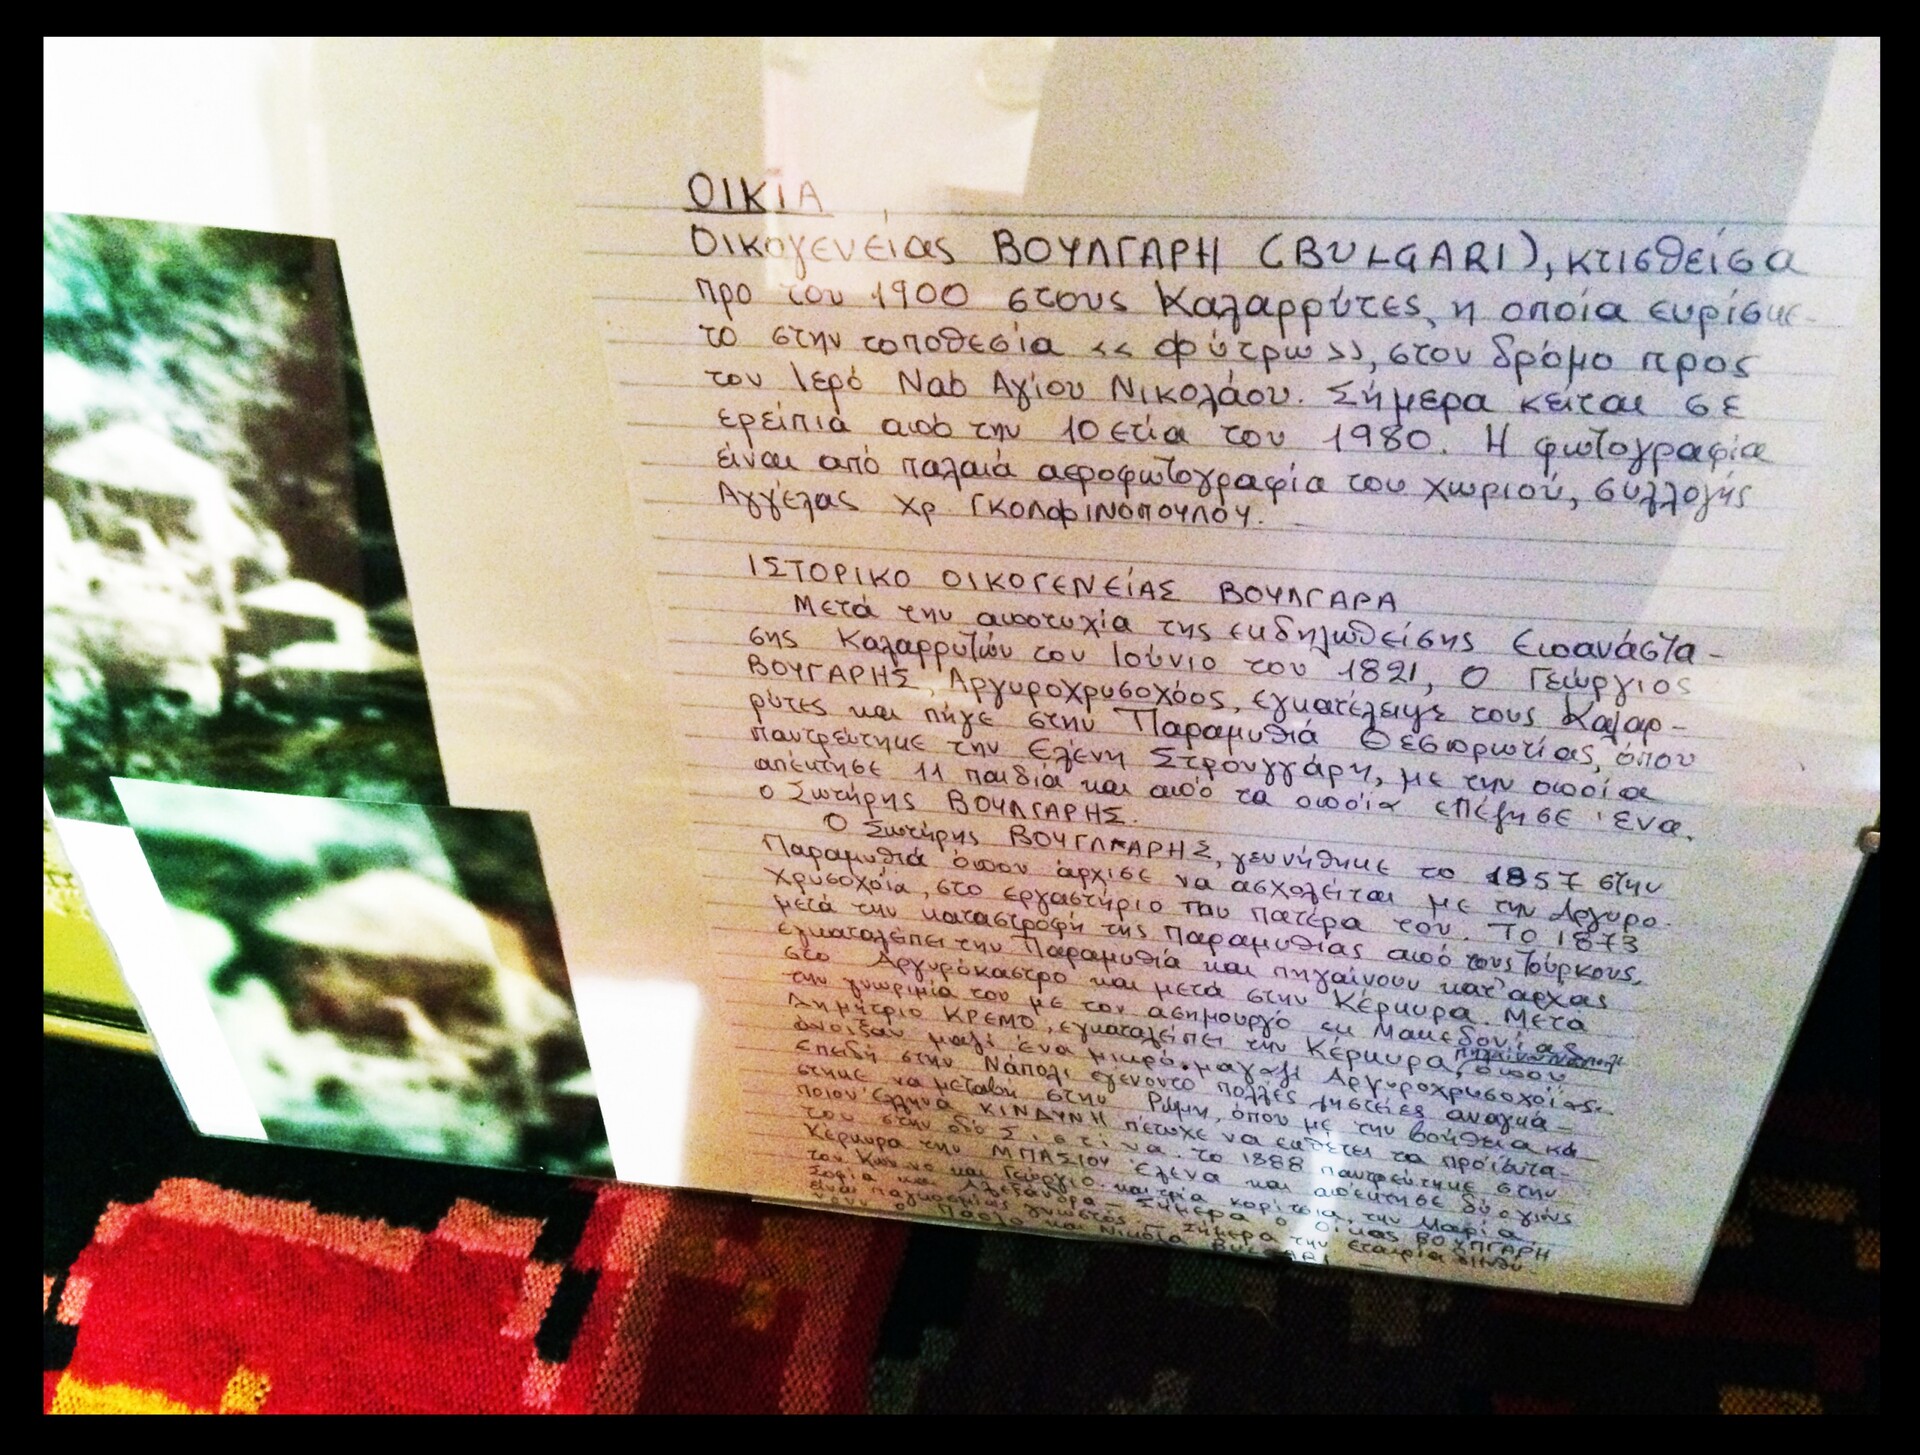 ΟΙΚΙΑ
Οικογενείας ΒΟΥΛΓΑΡΗ (BULGARI), κτισθείσα
προ του 1900 στους Καλαρρύτες, η οποία ευρίσκε-
το στην τοποθεσία << Φύτρω>>, στον δρόμο προς
τον Ιερό Ναό Αγίου Νικολάου. Σήμερα κείται σε
ερείπια από την 10ετία του 1980. Η φωτογραφία
είναι από παλαιά αεροφωτογραφία του χωριού, συλλογής
Αγγέλας Χρ. ΓΚΟΛΦΙΝΟΠΟΥΛΟΥ.
ΙΣΤΟΡΙΚΟ ΟΙΚΟΓΕΝΕίΑΣ ΒΟΥΛΓΑΡΑ
Μετά την αποτυχία της εκδηλωθείσης Επανάστα-
σης Καλαρρυτών τον Ιούνιο του 1821, Ο Γεώργιος
ΒΟΥΓΑΡΗΣ, Αργυροχρυσοχόος, εγκατέλειψε τους Καλαρ-
ρύτες και πήγε στην Παραμυθιά Θεσπρωτίας, όπου
παντρεύτηκε την Ελένη Στρουγγάρη, με την οποία
απέκτησε 11 παιδιά και από τα οποία επέζησε ένα.
ο Σωτήρης ΒΟΥΛΓΑΡΗΣ.
Ο Σωτήρης ΒΟΥΓΛΑΡΗΣ, γεννήθηκε το 1857 στην
Παραμυθιά όπου άρχισε να ασχολείται με την Αργυρο-
χρυσοχοία, στο εργαστήριο του πατέρα του. Το 1873
μετά την καταστροφή της Παραμυθίας από τους Τούρκους,
εγκαταλείπει την Παραμυθιά και πηγαίνουν κατ' αρχάς
στο Αργυρόκαστρο και μετά στην Κέρκυρα. Μετά
την γνωριμία του με τον ασημουργό εκ Μακεδονίας
Δημήτριο ΚΡΕΜΟ, εγκαταλείπει την Κέρκυρα, όπου
άνοιξαν μαζί ένα μικρό μαγαζί Αργυροχρυσοχοίας.
Επειδή στην Νάπολι εγένοντο πολλές ληστείες αναγκά-
στηκε να μεταβή στην Ρώμη, όπου με την βοήθεια κά-
ποιου Έλληνα ΚΙΝΔΥΝΗ πέτυχε να εκθέτει τα προϊόντα
του στην οδό Σιστίνα. το 1888 παντρεύτηκε στην
Κέρκυρα την ΜΠΑΣΙΟΥ Ελενα και απέκτησε δύο γιους
τον Κων/νο και Γεώργιο και τρία κορίτσια, την Μαρία
Σοφία και Αλεξάνδρα - Σήμερα ο Οίκος ΒΟΥΛΓΑΡΗ
είναι παγκοσμίως γνωστός - Σήμερα την εταιρία διευθύ-
νουν ο Πάολο και Νικόλα BULGARI